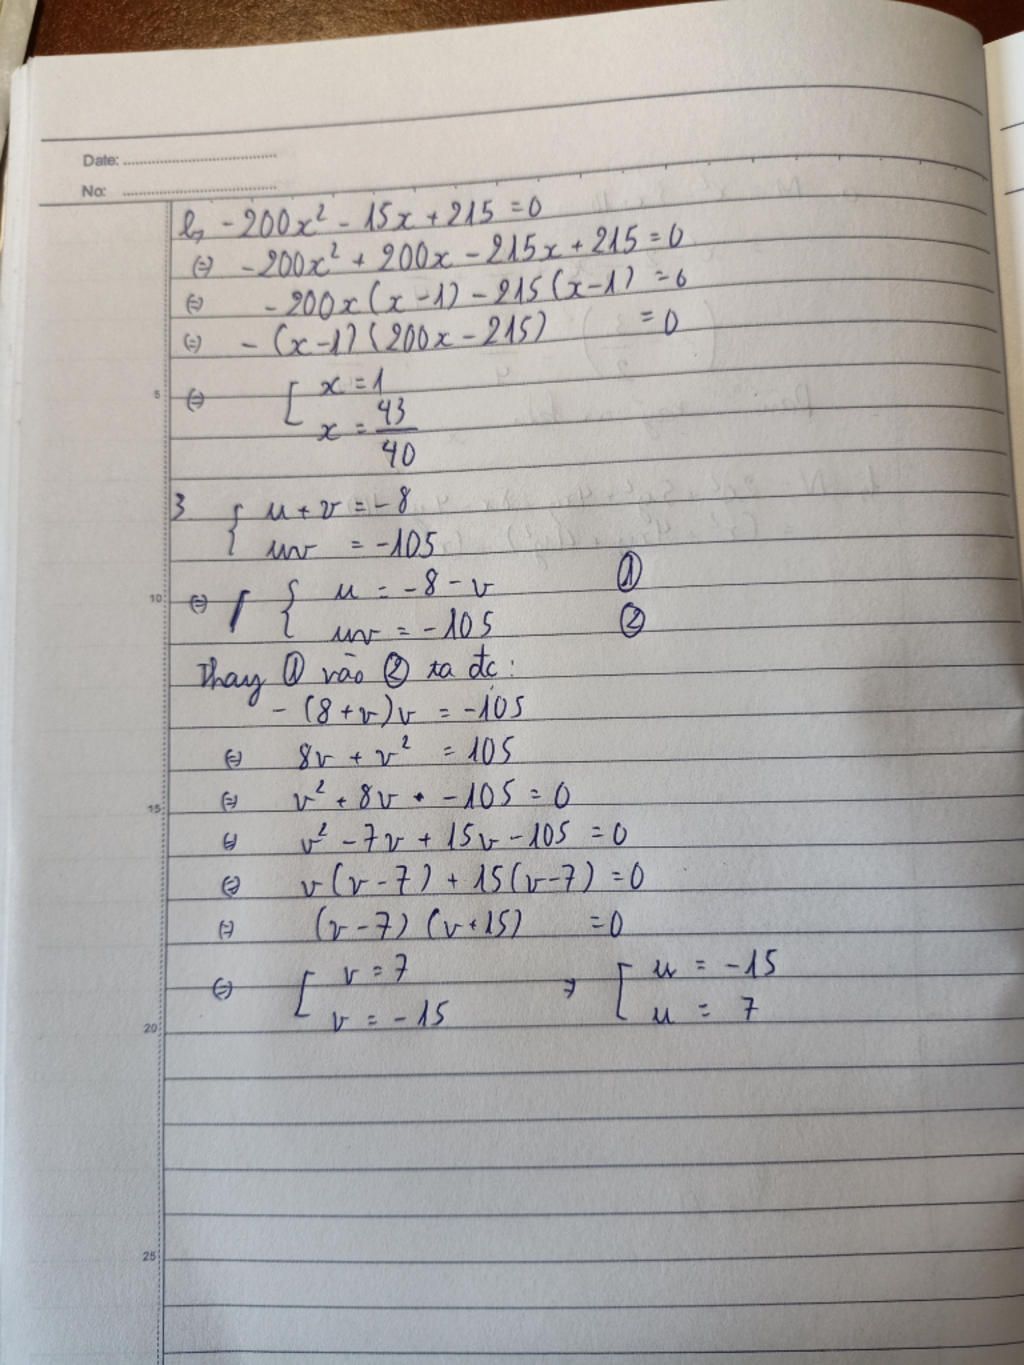 Date:
No:
b, -200x² - 15x + 215 = 0
(=) -200x² + 200x - 215x + 215 = 0
(=) -200x(x-1) - 215(x-1) = 0
(=) -(x-1)(200x - 215) = 0
5 (=) [ x = 1
x = 43/40
3 { u + v = -8
uv = -105
10 (=) { u = -8 - v ①
uv = -105 ②
Thay ① vào ② ta đc:
-(8+v)v = -105
(=) 8v + v² = 105
15 (=) v² + 8v - 105 = 0
(=) v² - 7v + 15v - 105 = 0
(=) v(v-7) + 15(v-7) = 0
(=) (v-7)(v+15) = 0
(=) [ v = 7 => [ u = -15
20 v = -15 u = 7
25